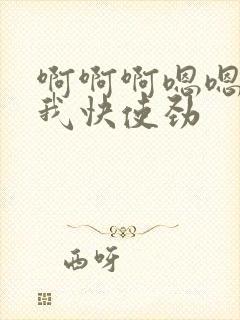 啊啊啊嗯嗯
我快使劲
西呀